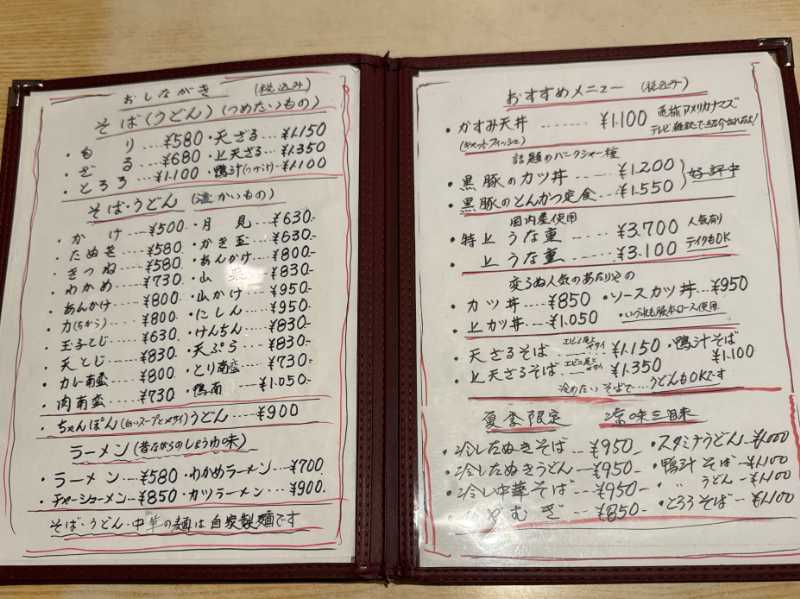 おしながき (税込み)
そば(うどん)(つめたいもの)
・もり ¥580 ・天ざる…¥1.150
・ざる ¥680 ・上天ざる…¥1.350
・とろろ ¥1.100 ・鴨汁(つけ汁)¥1.100
そば・うどん (温かいもの)
・かけ…¥500 ・月見…¥630-
・たぬき…¥580 ・かき玉…¥630-
・きつね…¥580 ・あんかけ…¥800-
・わかめ…¥730 ・山菜…¥830-
・あんかけ…¥800 ・山かけ…¥950-
・力(ちから)…¥800 ・にしん…¥950-
・玉子とじ…¥630 ・けんちん…¥830-
・天とじ…¥830 ・天ぷら…¥830-
・カレー南蛮…¥800 ・とり南蛮…¥730-
・肉南蛮…¥730 ・鴨南…¥1.050-
・ちゃんぽん(白いスープとメサイ)うどん…¥900
ラーメン(昔ながらのしょうゆ味)
・ラーメン…¥580 ・わかめラーメン…¥700
・チャーシューメン…¥850 ・カツラーメン…¥900.
そば・うどん・中華の麺は自家製麺です
おすすめメニュー (税込み)
・かすみ天丼……¥1.100 アメリカナマズ
(キャットフィッシュ) テレビ 雑誌で紹介されたよ!
話題のバークシャー種
・黒豚のカツ丼…¥1.200
・黒豚のとんかつ定食…¥1.550 好評中
国内産使用
・特上うな重…¥3.700 人気有り
・上うな重…¥3.100 テイクもOK
変らぬ人気のあたりその
・カツ丼…¥850 ・ソースカツ丼…¥950
・上カツ丼…¥1.050 ・いづれも豚本ロース使用
・天ざるそば…¥1.150 ・鴨汁そば
・上天ざるそば…¥1.350 ¥1.100
冷めたいそばで…うどんもOKです
夏季限定 涼味三昧
・冷したぬきそば…¥950 ・スタミナうどん…¥1.000
・冷したぬきうどん…¥950 ・鴨汁そば…¥1.100
・冷し中華そば…¥950 ・〃 うどん…¥1.100
・ひやむぎ…¥850 ・とろろそば…¥1.100